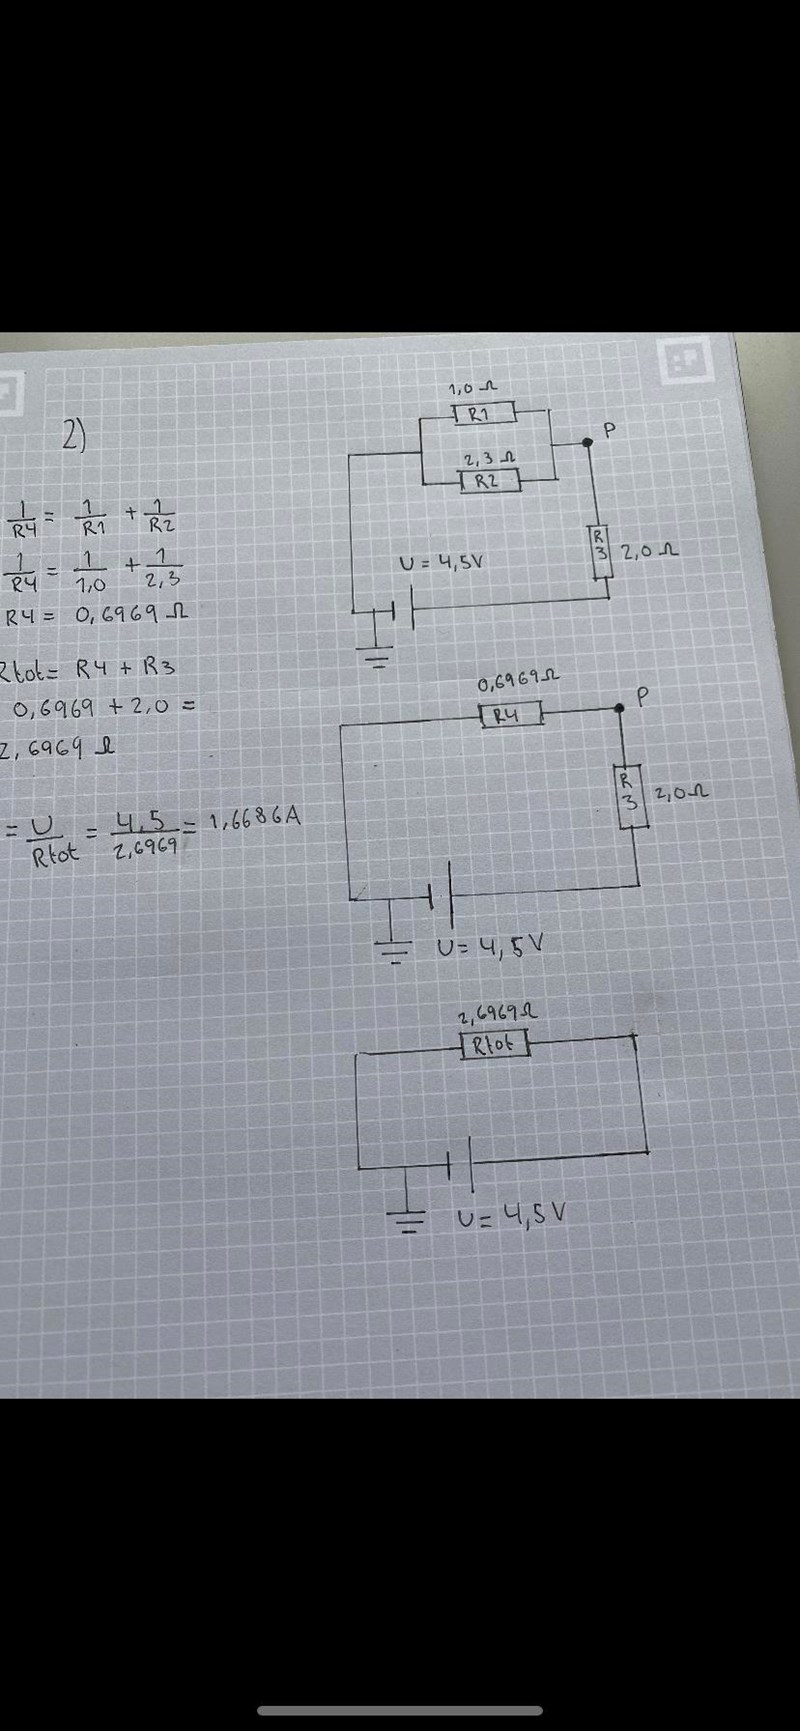 2)
1/R4 = 1/R1 + 1/R2
1/R4 = 1/1,0 + 1/2,3
R4 = 0,6969 Ω
Rtot = R4 + R3
0,6969 + 2,0 =
2,6969 Ω
= U/Rtot = 4,5/2,6969 = 1,6686A
1,0 Ω
R1
P
2,3 Ω
R2
R3
2,0 Ω
U = 4,5V
0,6969Ω
R4
P
R3
2,0Ω
U = 4,5V
2,6969Ω
Rtot
U = 4,5V